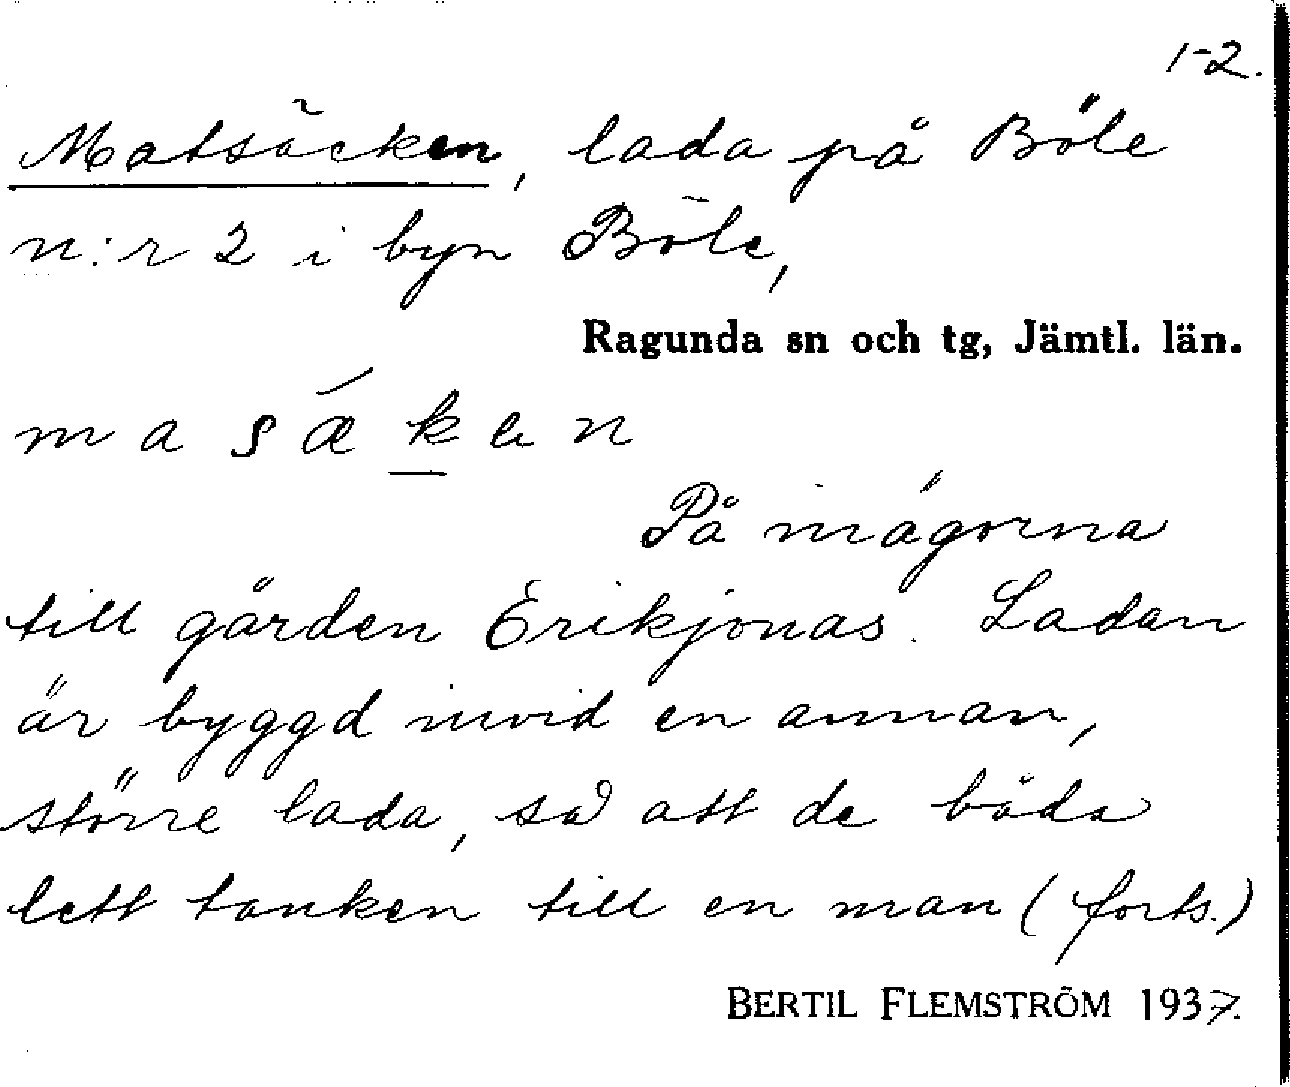 1-2.
Matsäcken, lada på Böle
n:r 2 i byn Böle,
Ragunda sn och tg, Jämtl. län.
m a s ǽ k e n
På inägorna
till gården Erikjonas. Ladan
är byggd invid en annan,
större lada, så att de båda
lett tanken till en man (forts.)
BERTIL FLEMSTRÖM 1937.